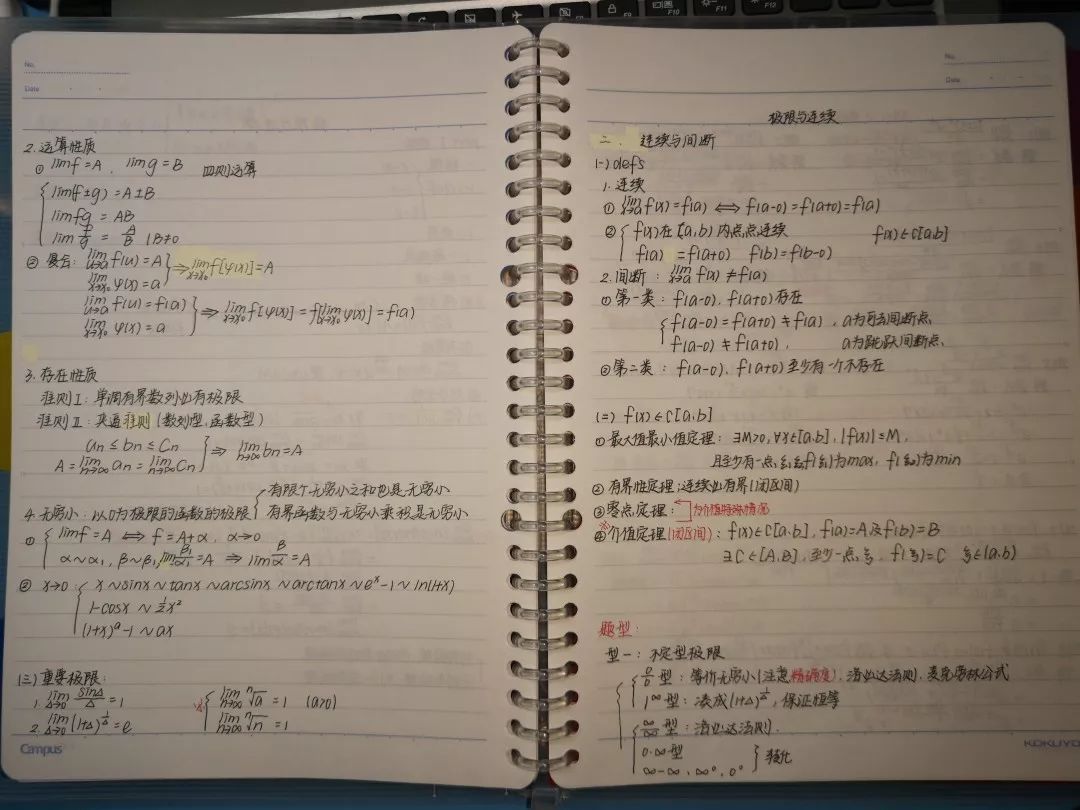 No.
Date
2.运算性质
① limf=A, limg=B 四则运算
lim(f±g)=A±B
limfg=AB
lim f/g = A/B (B≠0
② 复合: lim u→a f(u)=A
lim x→x₀ φ(x)=a
⇒ lim x→x₀ f[φ(x)]=A
lim u→a f(u)=f(a)
lim x→x₀ φ(x)=a
⇒ lim x→x₀ f[φ(x)]=f[lim x→x₀ φ(x)]=f(a)
3.存在性质
准则I:单调有界数列必有极限
准则II:夹逼准则(数列型,函数型)
an≤bn≤Cn
A=lim n→∞ an=lim n→∞ Cn
⇒ lim n→∞ bn=A
4.无穷小:以0为极限的函数的极限
有限个无穷小之和也是无穷小
有界函数与无穷小乘积是无穷小
① limf=A ⟺ f=A+α, α→0
α~α₁, β~β₁, lim β₁/α₁=A ⇒ lim β/α=A
② x→0: x~sinx~tanx~arcsinx~arctanx~eˣ-1~ln(1+x)
1-cosx~½x²
(1+x)ᵃ-1~ax
(三)重要极限:
1. lim Δ→0 sinΔ/Δ=1
2. lim Δ→0 (1+Δ)^(1/Δ)=e
☆ lim n→∞ ⁿ√a=1 (a>0)
lim n→∞ ⁿ√n=1
Campus
No.
Date
极限与连续
二、连续与间断
(一)defs
1.连续
① lim x→a f(x)=f(a) ⟺ f(a-0)=f(a+0)=f(a)
② f(x)在[a,b]内点点连续 f(x)∈C[a,b]
f(a)=f(a+0) f(b)=f(b-0)
2.间断: lim x→a f(x)≠f(a)
①第一类: f(a-0), f(a+0)存在
f(a-0)=f(a+0)≠f(a), a为可去间断点
f(a-0)≠f(a+0), a为跳跃间断点
②第二类: f(a-0), f(a+0)至少有一个不存在
(二) f(x)∈C[a,b]
①最大值最小值定理: ∃M>0, ∀x∈[a,b], |f(x)|≤M,
且至少有一点ξ₁,ξ₂ f(ξ₁)为max, f(ξ₂)为min
②有界性定理:连续必有界(闭区间)
③零点定理: 为介值特殊情况
※④介值定理(闭区间): f(x)∈C[a,b], f(a)=A及f(b)=B
∃C∈[A,B], 至少一点ξ, f(ξ)=C ξ∈(a,b)
题型:
型一:不定型极限
0/0型:等价无穷小(注意精确度),洛必达法则,麦克劳林公式
1^∞型:凑成(1+Δ)^(1/Δ),保证恒等
∞/∞型:洛必达法则
0·∞型
∞-∞, ∞⁰, 0⁰
转化
KOKUYO